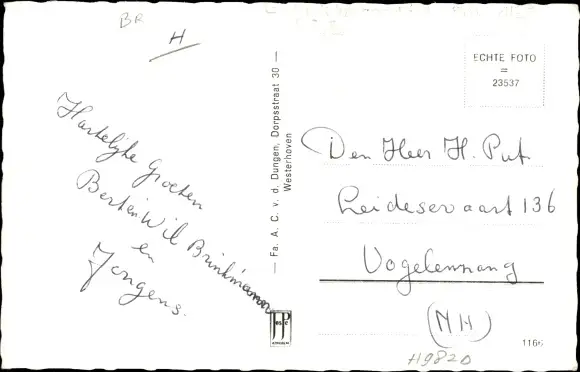 BR
H
Hartelijke Groeten
Bert en Wil Brinkman
en
Jongens.
— Fa. A. C. v. d. Dungen, Dorpsstraat 30 —
Westerhoven
JosPé
ECHTE FOTO
=
23537
Den Heer H. Put.
Leidsevaart 136
Vogelenzang
(NH)
1166
H982D